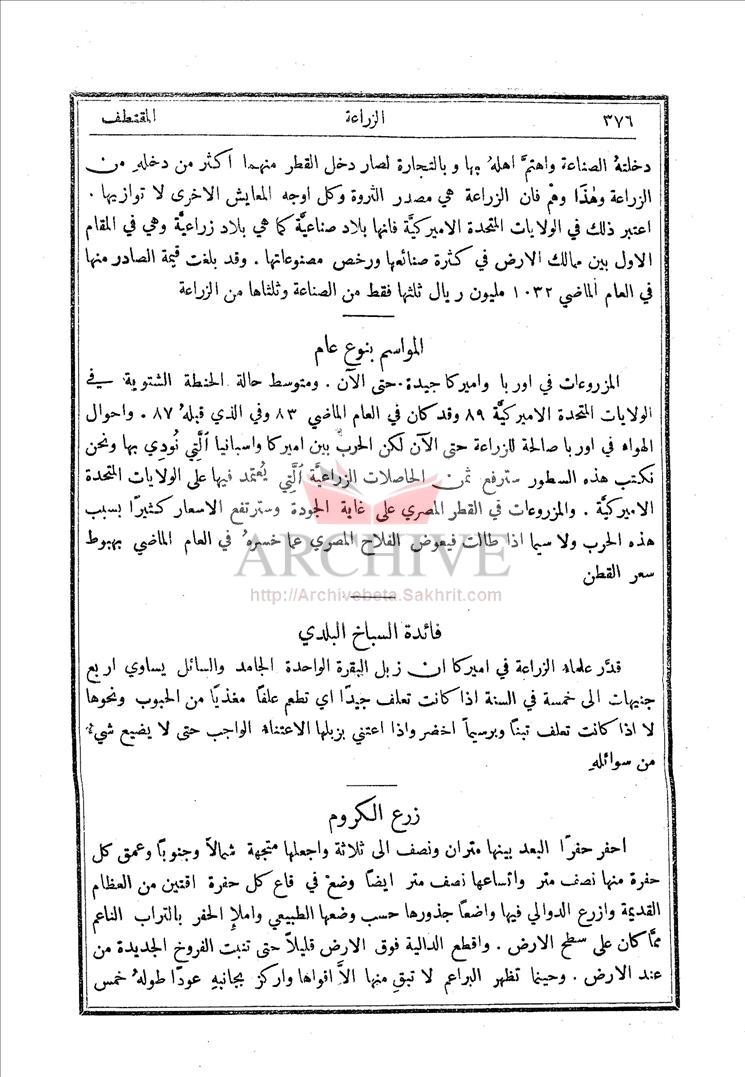 ٣٧٦ الزراعة المقتطف
دخلتهُ الصناعة واهتمَّ اهلهُ بها وبالتجارة لصار دخل القطر منهما اكثر من دخلهِ من
الزراعة وهٰذا وهمٌ فان الزراعة هي مصدر الثروة وكل اوجه المعايش الاخرى لا توازيها .
اعتبر ذلك في الولايات المتحدة الاميركيَّة فانها بلاد صناعيَّة كما هي بلاد زراعيَّة وهي في المقام
الاول بين ممالك الارض في كثرة صنائعها ورخص مصنوعاتها . وقد بلغت قيمة الصادر منها
في العام الماضي ١٠٣٢ مليون ريال ثلثها فقط من الصناعة وثلثاها من الزراعة
المواسم بنوع عام
المزروعات في اوربا واميركا جيدة حتى الآن . ومتوسط حالة الحنطة الشتوية في
الولايات المتحدة الاميركيَّة ٨٩ وقد كان في العام الماضي ٨٣ وفي الذي قبلهُ ٨٧ . واحوال
الهواء في اوربا صالحة للزراعة حتى الآن لكن الحرب بين اميركا واسبانيا ٱلَّتِي نُودِي بها ونحن
نكتب هذه السطور سترفع ثمن الحاصلات الزراعيَّة ٱلَّتِي يُعتمد فيها على الولايات المتحدة
الاميركيَّة . والمزروعات في القطر المصري على غاية الجودة وسترتفع الاسعار كثيرًا بسبب
هذه الحرب ولا سيما اذا طالت فيعوض الفلاح المصري عما خسرهُ في العام الماضي بهبوط
سعر القطن
ARCHIVE
http://Archivebeta.Sakhrit.com
فائدة السباخ البلدي
قدَّر علماء الزراعة في اميركا ان زبل البقرة الواحدة الجامد والسائل يساوي اربع
جنيهات الى خمسة في السنة اذا كانت تعلف جيدًا اي تطعم علفًا مغذيًا من الحبوب ونحوها
لا اذا كانت تعلف تبنًا وبرسيمًا اخضر واذا اعتني بزبلها الاعتناء الواجب حتى لا يضيع شيءٌ
من سوائلهِ
زرع الكروم
احفر حفرًا البعد بينها متران ونصف الى ثلاثة واجعلها متجهة شمالاً وجنوبًا وعمق كل
حفرة منها نصف متر واتساعها نصف متر ايضًا وضع في قاع كل حفرة اقتين من العظام
القديمة وازرع الدوالي فيها واضعًا جذورها حسب وضعها الطبيعي واملإ الحفر بالتراب الناعم
ممَّا كان على سطح الارض . واقطع الدالية فوق الارض قليلاً حتى تنبت الفروخ الجديدة من
عند الارض . وحينما تظهر البراعم لا تبقِ منها الاَّ اقواها واركز بجانبهِ عودًا طولهُ خمس